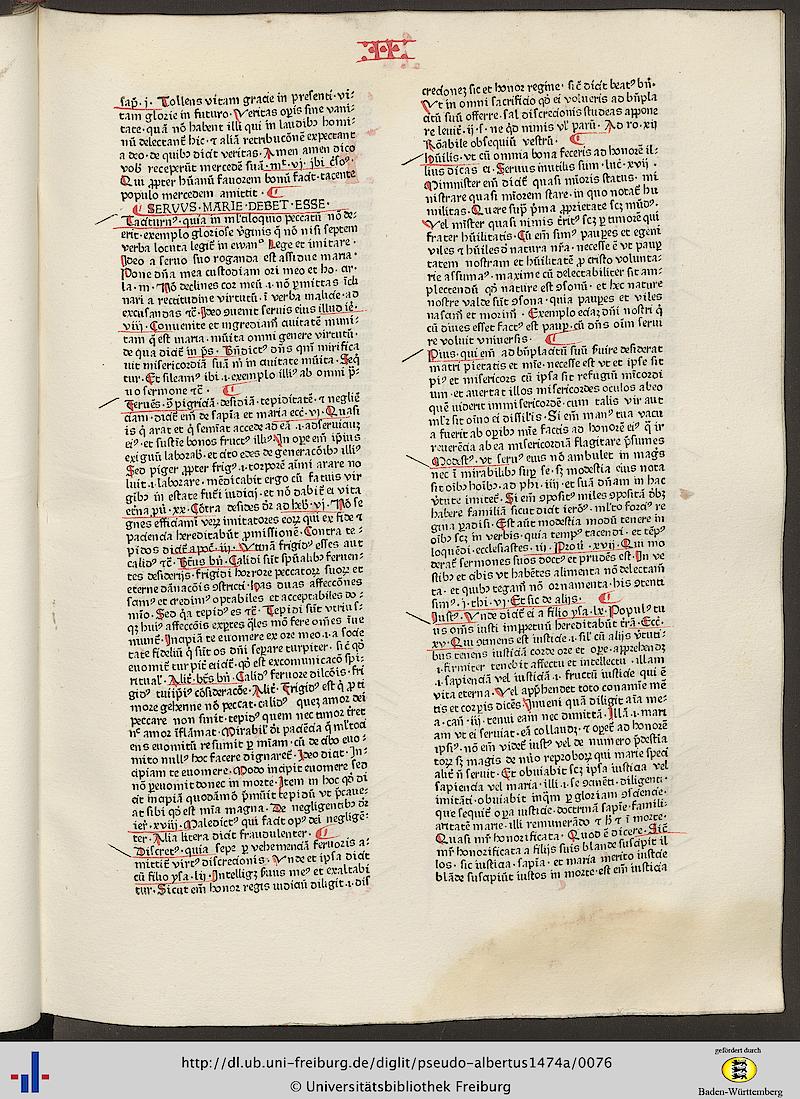 II
sap̄. j. Tollens vitam gracie in presenti vi⸗
tam glorie in futuro. Veritas op̄is sine vani⸗
tate quā nō habent illi qui in laudibꝫ homi⸗
nū delectant̄ hic ⁊ aliā retribucōne expectant
a deo de quibꝫ dicit veritas. Amen amen dico
vob receperūt mercedē suā. mt. vj. ibi
Qui ꝓpter hūanū favorem bonū facit tacente
populo mercedem amittit.
SERVVS MARIE DEBET ESSE.
Taciturnꝰ. quia in ml̄tiloquio peccatū nō de⸗
erit. exemplo gloriose v̄gınis q̄ nō nisi septem
verba locuta legit̄ in ewan. Lege et imitare.
Ideo a servo suo roganda est assidue maria.
Pone dn̄a mea custodiam ori meo et ho. cir⸗
la. m. Nō declines cor meū. i. nō ꝑmittas īcli
nari a rectitudine virtutū. ī verba malicie. ad
excusandas ⁊c̄. Ideo ꝯuenit seruis eius illud ie.
viij. Conuenite et ingrediam̄ ciuitatē muni⸗
tam q̄ est maria. mūita omni genere virtutū.
de qua dicit̄ in ps. Bn̄dictꝰ dn̄s qm̄ mirifica
uit misericordiā suā m̄ in ciuitate mūita. Seq̄
tur. Et sileamꝰ ibi. i. exemplo illiꝰ ab omni
uo sermone ⁊c̄.
Feruēs. ꝯ̄ pigriciā. desidiā. tepiditatē. ⁊ neglıē
ciam. dicit̄ em̄ de sapīa et maria ecc̄. vj. Quasi
is q̄ arat et q̄ semīat accede ad eā. i. ad seruiciū
eiꝰ. et sustīe bonos fructꝰ illiꝰ. In ope em̄ ip̄ius
exiguū laborab. et cito edes de generacōibꝫ illiꝰ
Sed piger ꝓpter frigꝰ. i. torporē aīmi arare no
luit. i. laborare. mēdicabit ergo cū fatuis vir
gībꝫ in estate fut̄i iudicij. et nō dabit̄ ei vita
et̄na. pū. xx. Cōtra desides dr̄ ad heb. vj. Nō se
gnes efficiam̄ verꝫ imitatores eorꝫ qui ex fide ⁊
paciencia hereditabūt ꝓmissionē. Contra te⸗
pidos dicit̄ apoc̄. iij. Vtinā frigidꝰ esses aut
calidꝰ ⁊c̄. Bt̄us bn̄. Calidi sūt spūalibꝫ feruen⸗
tes desiderijs. frigidi horrore peccatorꝫ suorꝫ et
eterne dānacōis ꝯstricti. Has duas affeccōnes
sam. et credimꝰ optabiles et acceptabiles do⸗
mīo. Sed q̄a tepidꝰ es ⁊c̄. Tepidi sūt vtriusq̄
ꝫ huiꝰ affeccōis expertes q̄les mō fere om̄es iue
mūnt̄. Incipiā te euomere ex ore meo. i. a socie
tate fidelıū q̄ sūt os dn̄i separe turpiter. sic̄ qd̄
euomit̄ turpit̄ eicit̄. qd̄ est excomunicacō spi⸗
ritual. Alit̄. bt̄s bn̄. Calidꝰ feruore dilcōis. fri
gidꝰ cōsideracōe. Alit̄. Frigidꝰ est q̄ ꝑ ti
more gehenne nō peccat. calidꝰ quez amor dei
peccare non sinit. tepidꝰ quem nec timor tret
nꝰ amor īflamat. Mirabil. dn̄i paciēcia q̄ ml̄toci
ens euomitū resumit ꝑ m̄iam. cū de cibo euo⸗
mito nullꝰ hoc facere dignaret̄. Ideo dicit. In⸗
cipiam te euomere. Modo incipit euomere sed
nō ꝑeuomit donec in morte. Item in hoc qd̄ di
cit incipiā quodāmō p̄muīt tepidū vt p̄caue⸗
at sibi qd̄ est mīa magna. De negligentibꝫ dr̄
ier̄. xviij. Maledictꝰ qui facit opꝰ dei negligē⸗
ter. Alia litera dicit fraudulenter.
Discretꝰ. quia sepe ꝑ vehemenciā feruoris a⸗
mittit̄ virtꝰ discrecionis. Vnde et ipsa dicit
cū filio ysa. lij. Intelligꝫ ẜuus meꝰ et exaltabi
tur. Sicut em̄ honor regis iudiciū diligit. i. dis
crecionez sic et honor regine. sic̄ dicit beatꝰ bn̄.
Vt in omni sacrificio qd̄ ei volueris ad bn̄pla
citū suū offerre. sal discrecionis studeas appone
re leuit̄. ij. s. ne qd̄ nimis vl̄ parū. Ad ro. xij
Rōabile obsequiū vestrū.
Hūilis. vt cū omnia bona feceris ad honorē il⸗
lius dicas ei. Seruus inutilis sum. luc̄. xvij.
Minmister em̄ dicit̄ quasi mīoris status. mi
nistrare quasi miorem stare. in quo notat̄ hu
militas. Quere sup̄ p̄ma ꝓprietate scꝫ mūdꝰ.
Vel mīster quasi nimis t̄ritꝰ scꝫ ꝑ timorē qui
frater hūilitatis. Cū em̄ simꝰ paupes et egeni
viles ⁊ hūiles d natura nr̄a. necesse ē vt paup
tatem nostram et hūilitatē ꝑ cristo volunta⸗
rie assumaꝰ. maxime cū delectabiliter sit am⸗
plectendū qd̄ nature est ꝯsonū. et hec nature
nostre valde sūt ꝯsona. quia paupes et viles
nascim̄ et morim̄. Exemplo eciaꝫ dn̄i nostri q̄
cū diues esset factꝰ est paup. cū dn̄s oim̄ serui
re voluit vniuersis.
Pius. qui em̄ ad bn̄placitū suū ẜuire desiderat
matri pietatis et mīe. necesse est vt et ipse sit
piꝰ et misericors cū ipsa sit refugiū mīcordi
um. et auertat illos misericordes oculos abeo
quē viderit inmisericordē. cum talis vir aut
ml̄r sit oīno ei dissilis. Si em̄ manꝰ tua vacu
a fuerit ab opibꝫ mīe faciēs ad honorē eiꝰ q̄ ir
reuerēcia ab ea misericordiā flagitare p̄sumes
Modestꝰ. vt seruꝰ eius nō ambulet in maḡs
nec ī mirabilibꝫ sup se. sꝫ modestia eius nota
sit oībꝫ hoībꝫ. ad phi. iiij. et suā dn̄am in hac
v̄tute imitet̄. Si em̄ ꝯposit. miles ꝯpositā dbꝫ
habere familiā sicut dicit ierōꝰ. ml̄to forciꝰ re
gina ꝑadisi. Est aūt modestia modū tenere in
oībꝫ scꝫ in verbis. quia tempꝰ tacendi. et tēpꝰ
loquēdi. ecclesiastes. iij. Prou̅. xvij. Qui mo
derat̄ sermones suos doctꝰ et prudēs est. In ve
stibꝫ et cibis vt habētes alimenta nō delectam̄
ta. et quibꝫ tegam̄ nō ornamenta. his ꝯtenti
simꝰ. j. thi. vj. Et sic de alijs.
Justꝰ. Vnde dicit̄ ei a filio ysa. lx. Populꝰ tu
us om̄s iusti impetuū hereditabūt t̄rā. Ecc̄.
xv. Qui ꝯtinens est iusticie. i. sil̄ cū alijs v̄tuti⸗
bus tenens iusticiā corde ore et ope. apprehendꝫ
i. firmiter tenebit affectu et intellectu. illam
i. sapienciā vel iusticiā. i. fructū iusticie qui ē
vita eterna. Vel app̄hendet toto conamie mē
tis et corpis dicēs. Inueni quā diligit aīa me⸗
a. can̄. iij. tenui eam nec dimittā. Illā. i. mari
am vt ei seruiat. eā collaudꝫ. ⁊ opet̄ ad honorē
ipsꝰ. nō em̄ videt̄ iustꝰ vel de numero p̄destīa
torꝫ sꝫ magis de nūo reproborꝫ qui marie speci
alit̄ n̄ seruit. Et obuiabit scꝫ ipsa iusticia vel
sapiencia vel maria. illi. i. se ꝯanēti. diligent̄.
imitāti. obuiabit inq̄m ꝑ gloriam ꝯsciencie.
que sequit̄ opꝰa iusticie. doctrınā sapīe. famili⸗
aritatē marie. illi remunerādo ⁊ h̄ ⁊ ī morte.
Quasi mr̄ honorificata. Quod ē dicere. Sic̄
mr̄ honorificata a filijs suis blande suscipit il
los. sic iusticia. sapīa. et maria merito iusticie
blāde suscipiūt iustos in morte. est em̄ iusticia
http://dl.ub.uni-freiburg.de/diglit/pseudo-albertus1474a/0076
© Universitätsbibliothek Freiburg
gefördert durch
Baden-Württemberg